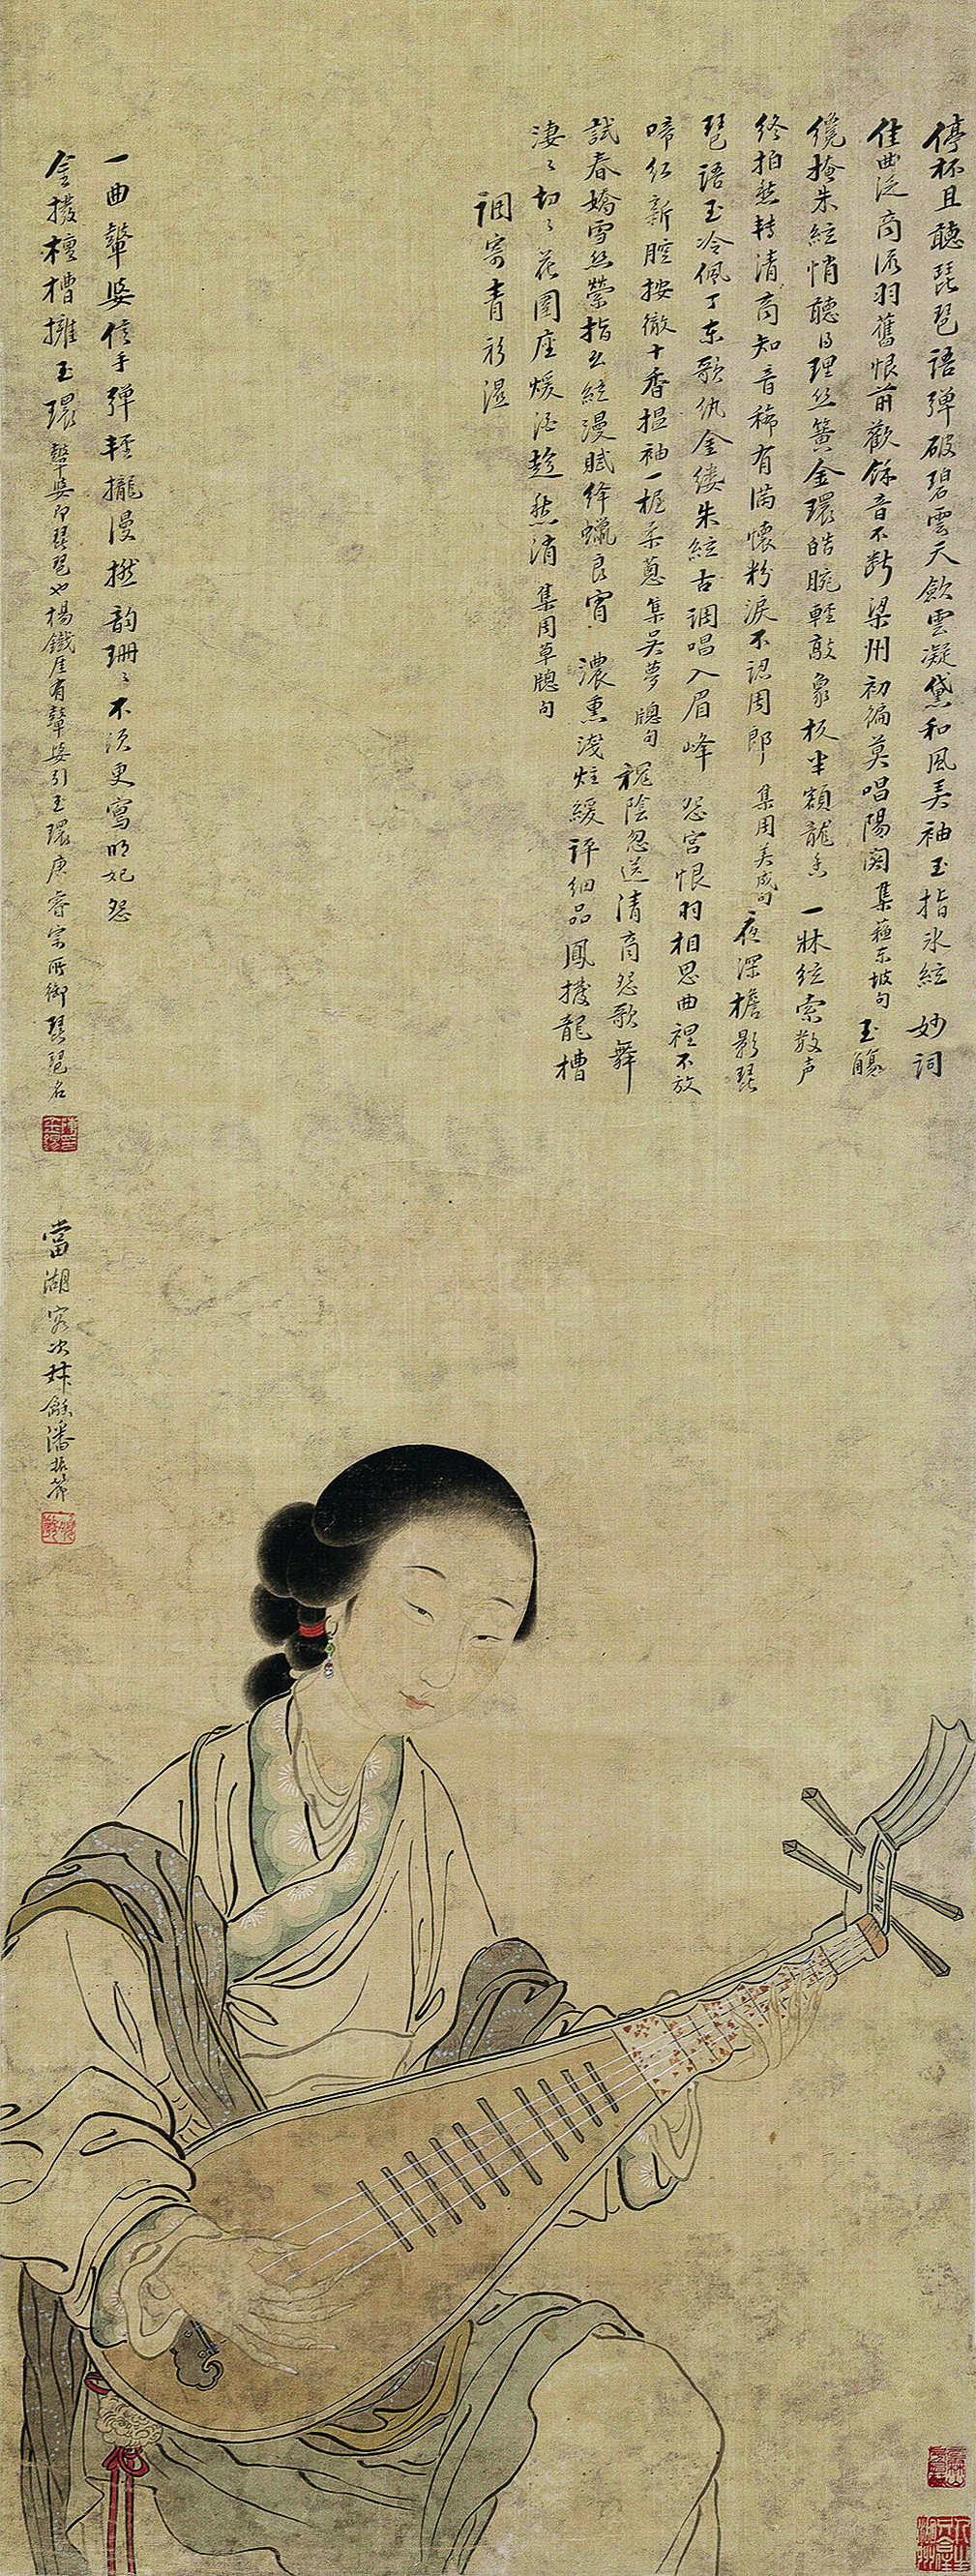 停杯且聽琵琶語弹破碧雲天歛雲凝黛和風弄袖玉指冰絃 妙詞
佳曲泛商流羽舊恨前歡餘音不斷梁州初徧莫唱陽関 集蘇東坡句 玉觴
纔掩朱絃悄聽得理絲簧金環皓腕輕敲象板半額龍香 一牀絃索散声
終拍愁轉清商知音稀有滿懷粉淚不認周郎 集周美成句 夜深檐影琵
琶語玉冷佩丁东歌仇金缕朱絃古調唱入眉峰 怨宮恨羽相思曲裡不放
啼红新腔按徹十香揾袖一握柔蔥 集吳夢牕句 槐陰忽送清商怨歌舞
試春嬌雪絲縈指么絃漫賦绛蠟良宵 濃熏淺炷緩評細品鳳撥龍槽
淒〻切〻花圍座煖酒趁愁消 集周草牕句
調寄青衫濕
一曲鼙婆信手弹輕攏漫撚韵珊〻不須更寫明妃怨
金撥檀槽擁玉環 鼙婆即琵琶也楊鐵厓有鼙婆引玉環唐睿宗所御琵琶名
當湖客次 潘振節